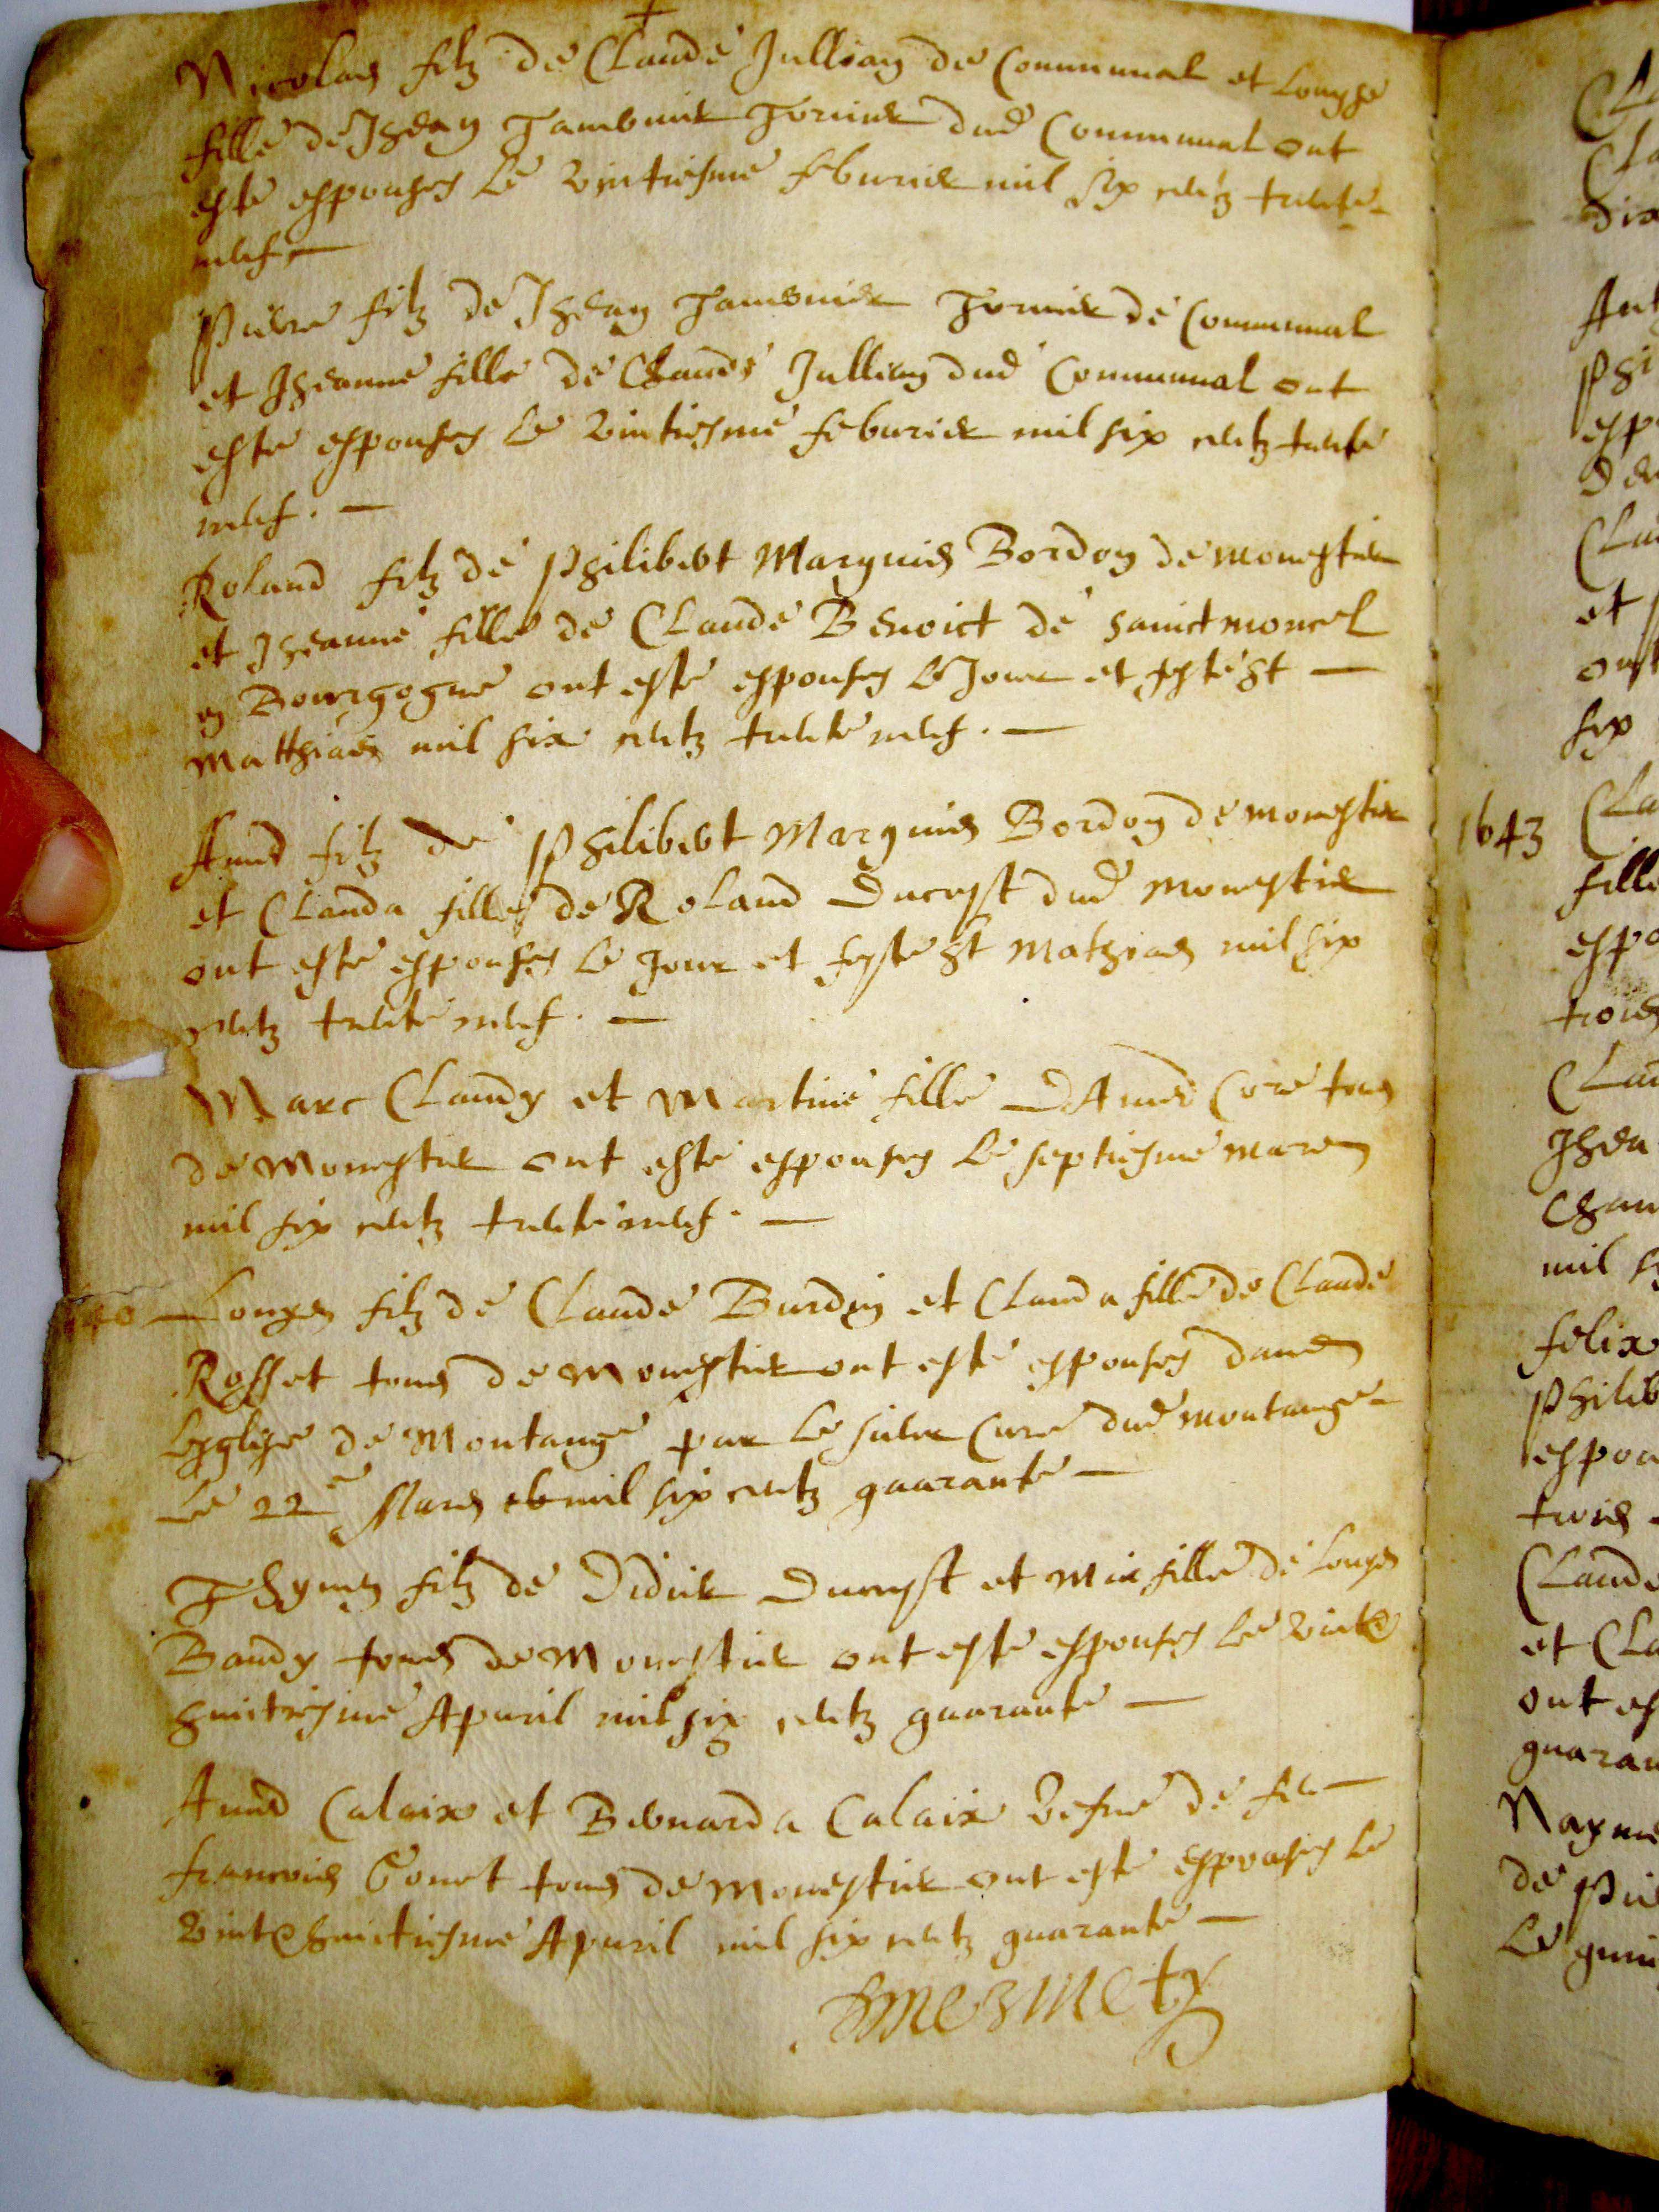 Nicolas filz de Claude Jullian de Communal et Louyse
fille de Jhean Tambuuier Tornier dud Communal ont
este espouses le vintiesme feburier mil six centz trente
neuf
Pierre filz de Jhean Tambuuier Tornier de Communal
et Jheanne fille de Claude Jullian dud Communal ont
este espouses le vintiesme feburier mil six centz trente
neuf.
Roland filz de Philibert Marquis Bordon de Monestier
et Jheanne fille de Claude Benoict de sainct moncel
en Bourgogne ont este espouses le Jour et feste St
Matthias mil six centz trente neuf.
Amed filz de Philibert Marquis Bordon de Monestier
et Clauda fille de Roland Ducrest dud Monestier
ont este espouses le Jour et feste St Mathias mil six
centz trente neuf.
Marc Claudy et Martine fille D'Amed Core tous
de Monestier ont este espouses le septiesme mars
mil six centz trente neuf.
40 Louys filz de Claude Burdin et Clauda fille de Claude
Rosset tous de Monestier ont este espouses dans
lesglise de Montange par le sieur Cure dud Montange
Le 22e Mars mil six centz quarante
Thymen filz de Didier Ducrest et Mie fille de Louys
Baudy tous de Monestier ont este espouses le vint &
huitiesme Apuril mil six centz quarante
Amed Calaix et Bernarda Calaix vefue de feu
francois Gonet tous de Monestier ont este espouses le
vint & huictiesme Apuril mil six centz quarante
Hmermety
1643